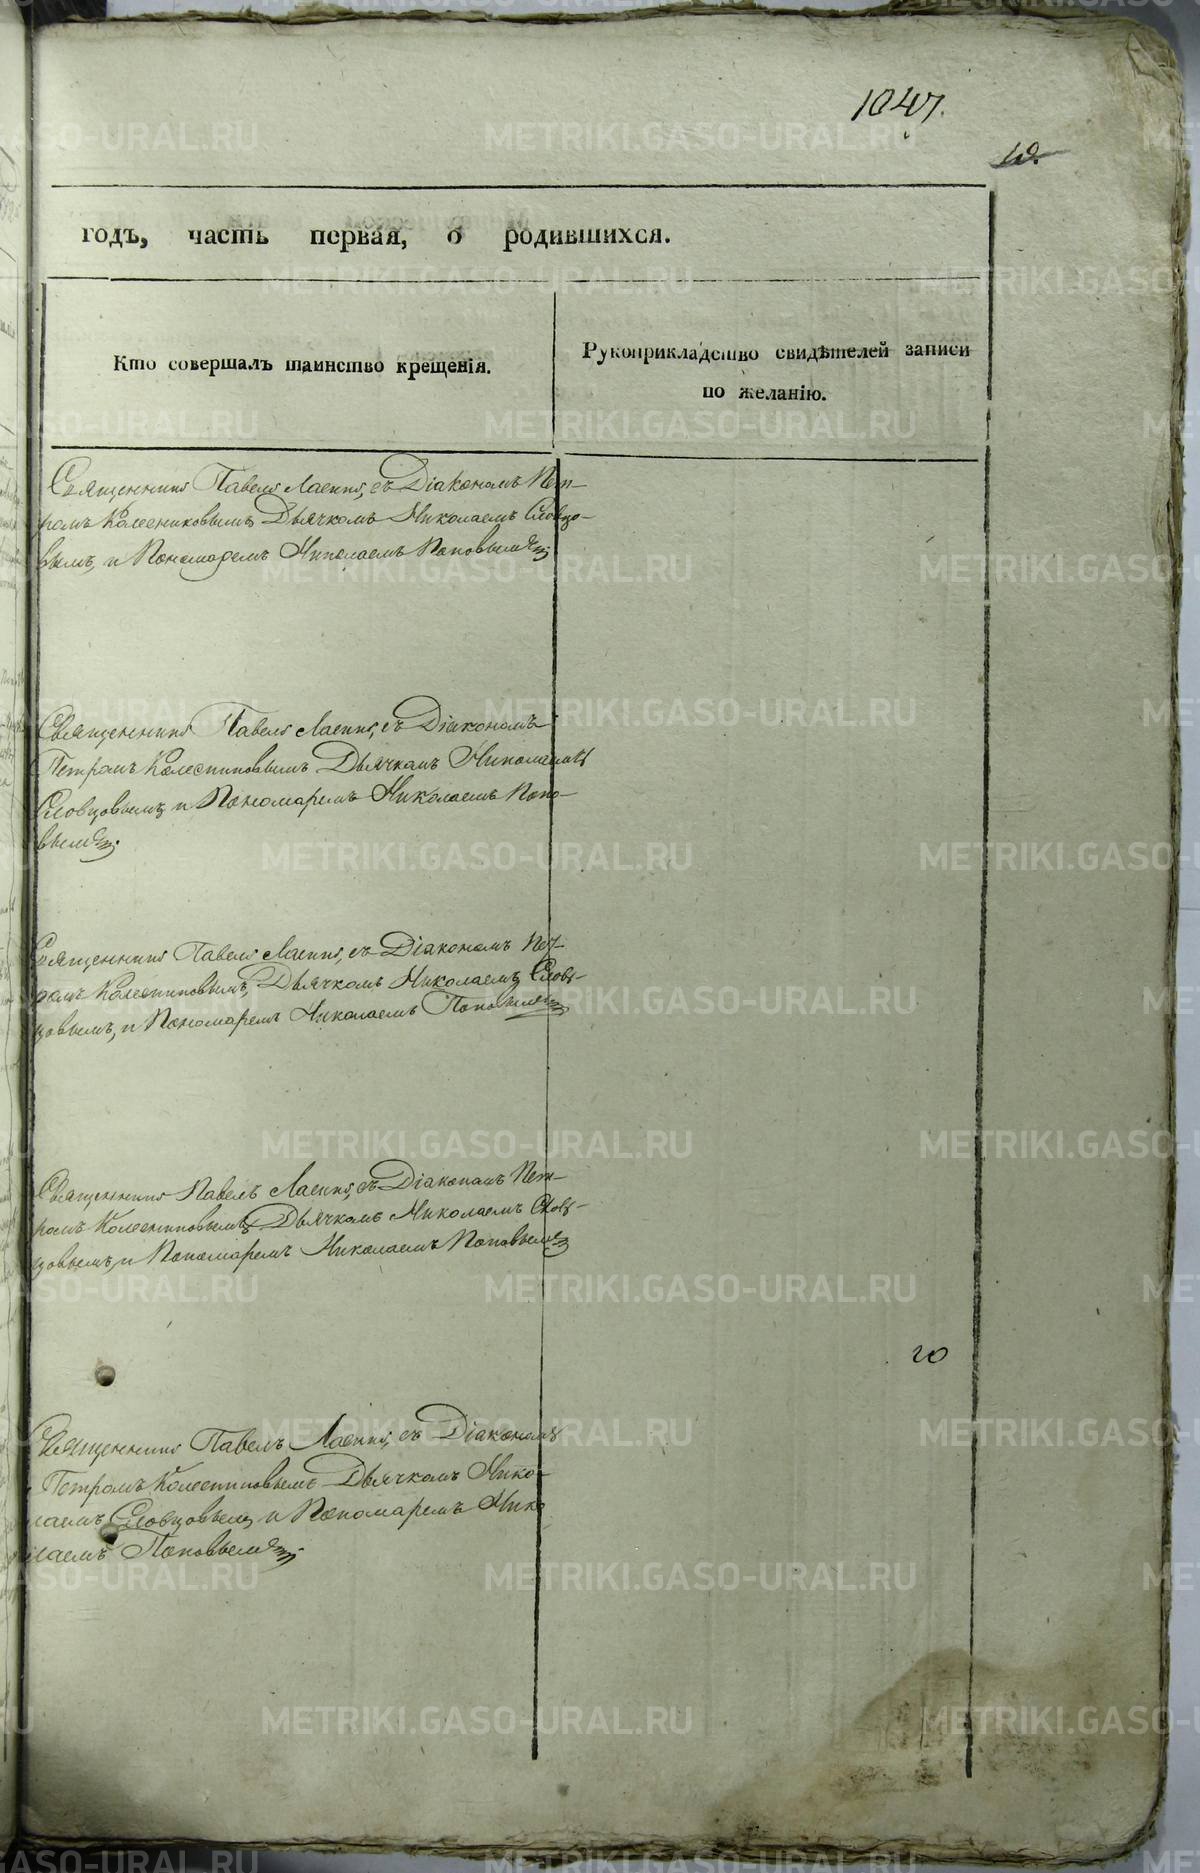 1047.
10.
годъ, часть первая, о родившихся.
Кто совершалъ таинство крещенія.
Рукоприкладство свидѣтелей записи
по желанію.
Священникъ Павелъ съ Діакономъ Пет-
ромъ Колесниковымъ, Дьячкомъ Николаемъ Словцо-
вымъ, и Пономаремъ Николаемъ Поповымъ
Священникъ Павелъ съ Діакономъ
Петромъ Колесниковымъ Дьячкомъ Николаемъ
Словцовымъ и Пономаремъ Николаемъ Попо-
вымъ
Священникъ Павелъ съ Діакономъ Пет-
ромъ Колесниковымъ, Дьячкомъ Николаемъ Слов-
цовымъ, и Пономаремъ Николаемъ Поповымъ
Священникъ Павелъ съ Діакономъ Пет-
ромъ Колесниковымъ Дьячкомъ Николаемъ Слов-
цовымъ, и Пономаремъ Николаемъ Поповымъ
20
Священникъ Павелъ съ Діакономъ
Петромъ Колесниковымъ Дьячкомъ Нико-
лаемъ Словцовымъ и Пономаремъ Нико
лаемъ Поповымъ
METRIKI.GASO-URAL.RU